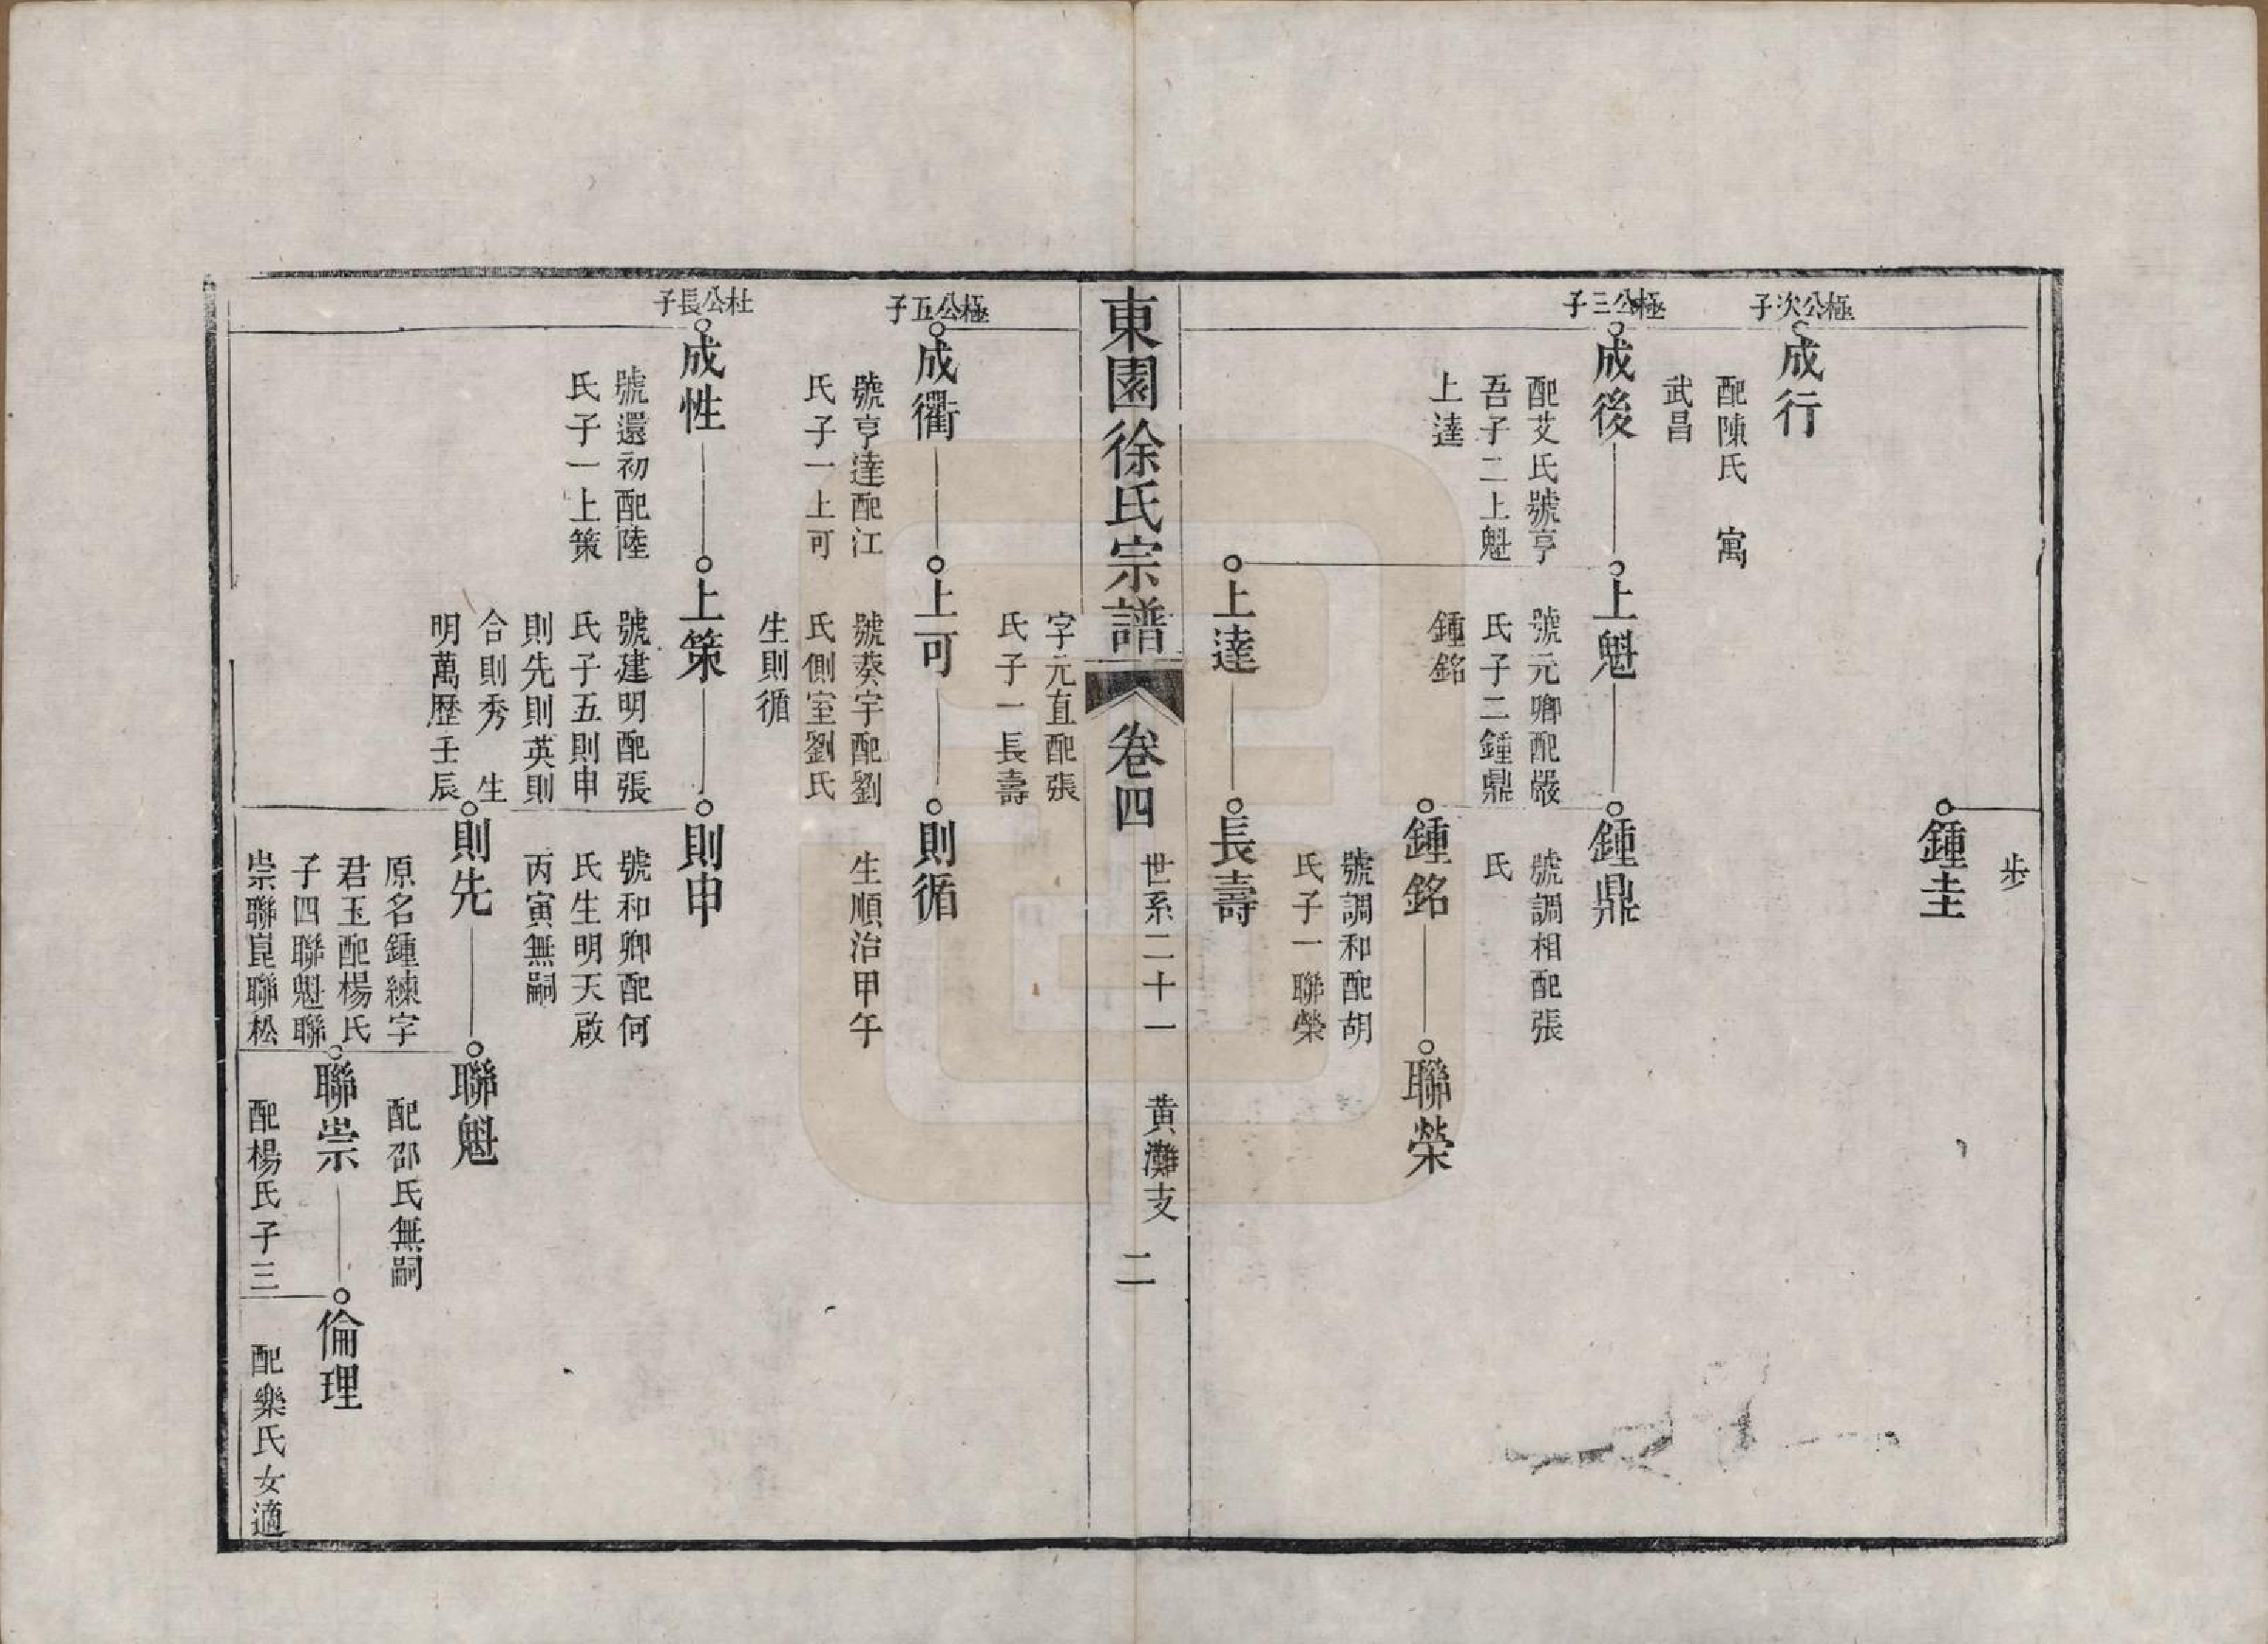 步
鍾圭
極公次子
成行
配陳氏　寓
武昌
極公三子
成後
配艾氏號亨
吾子二上魁
上達
上魁
號元卿配嚴
氏子二鍾鼎
鍾銘
鍾鼎
號調相配張
氏
鍾銘
號調和配胡
氏子一聯榮
聯榮
上達
字元直配張
氏子一長壽
長壽
東園徐氏宗譜
卷四
世系二十一　黃灘支
二
極公五子
成衢
號亨達配江
氏子一上可
上可
號葵宇配劉
氏側室劉氏
生則循
則循
生順治甲午
杜公長子
成性
號還初配陸
氏子一上策
上策
號建明配張
氏子五則申
則先則英則
合則秀　生
明萬歷壬辰
則申
號和卿配何
氏生明天啟
丙寅無嗣
則先
原名鍾練字
君玉配楊氏
子四聯魁聯
崇聯崑聯松
聯魁
配邵氏無嗣
聯崇
配楊氏子三
倫理
配樂氏女適